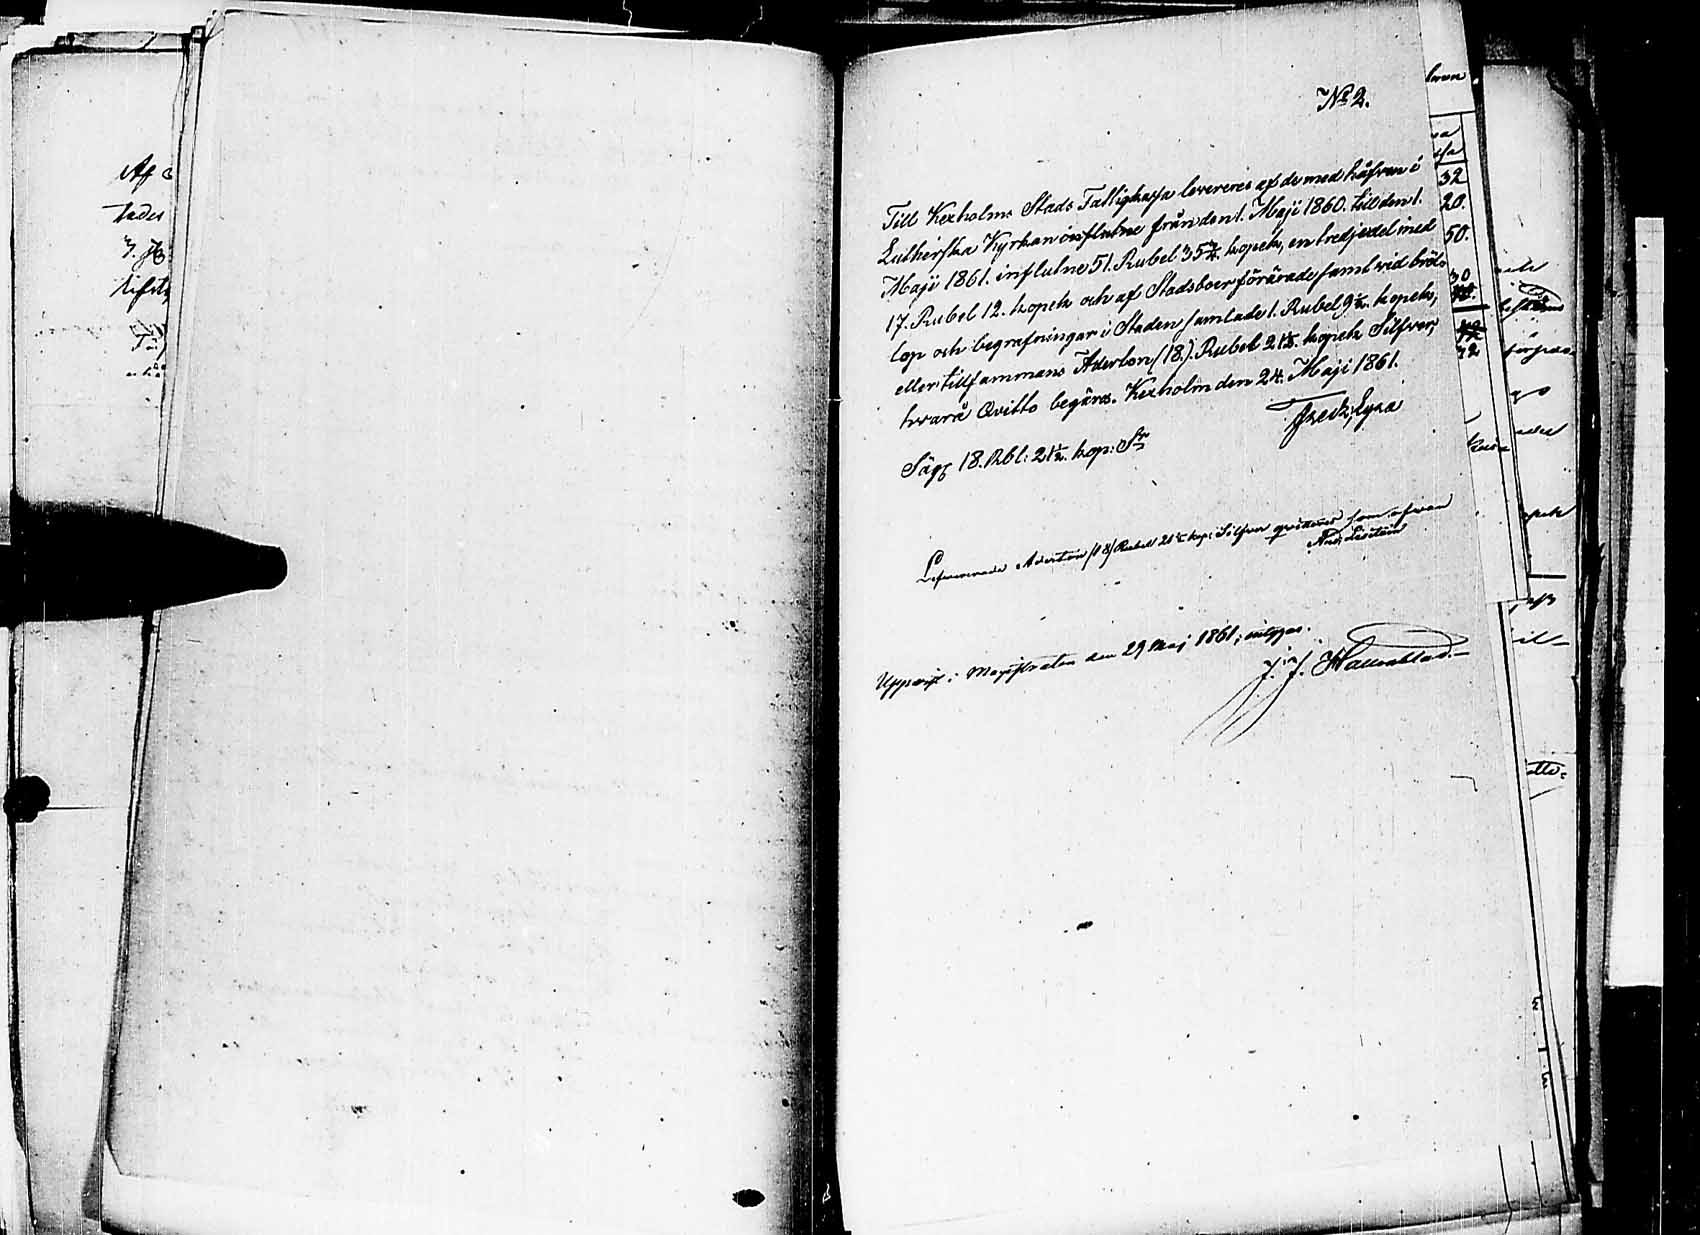 № 2.
Till Kexholms Stads Fattigkassa levereres af de med håfven i
Lutherska Kyrkan influtne från den 1. Maji 1860. till den 1.
Maji 1861. influtne 51. Rubel 35 3/4. kopek, en tredjedel med
17. Rubel 12. kopek och af Stadsboer förärade samt vid bröl-
lop och begrafningar i Staden samlade 1. Rubel 9 1/2. kopek,
eller tillsammans Aderton (18.). Rubel 21 1/2. kopek Silfver,
hvarå Qvitto begäres. Kexholm den 24. Maji 1861.
Fredr. Eyra
Säg 18. Rbl: 21 1/2. kop: Sr
Lefvererade Aderton (18) Rubel 21 1/2 kop: Silfver qvitteras som ofvan
Uppvist i Magistraten den 29 Maj 1861; intygar.
J. J. Hallenblad.
Af
tades
32
20.
50.
30
32